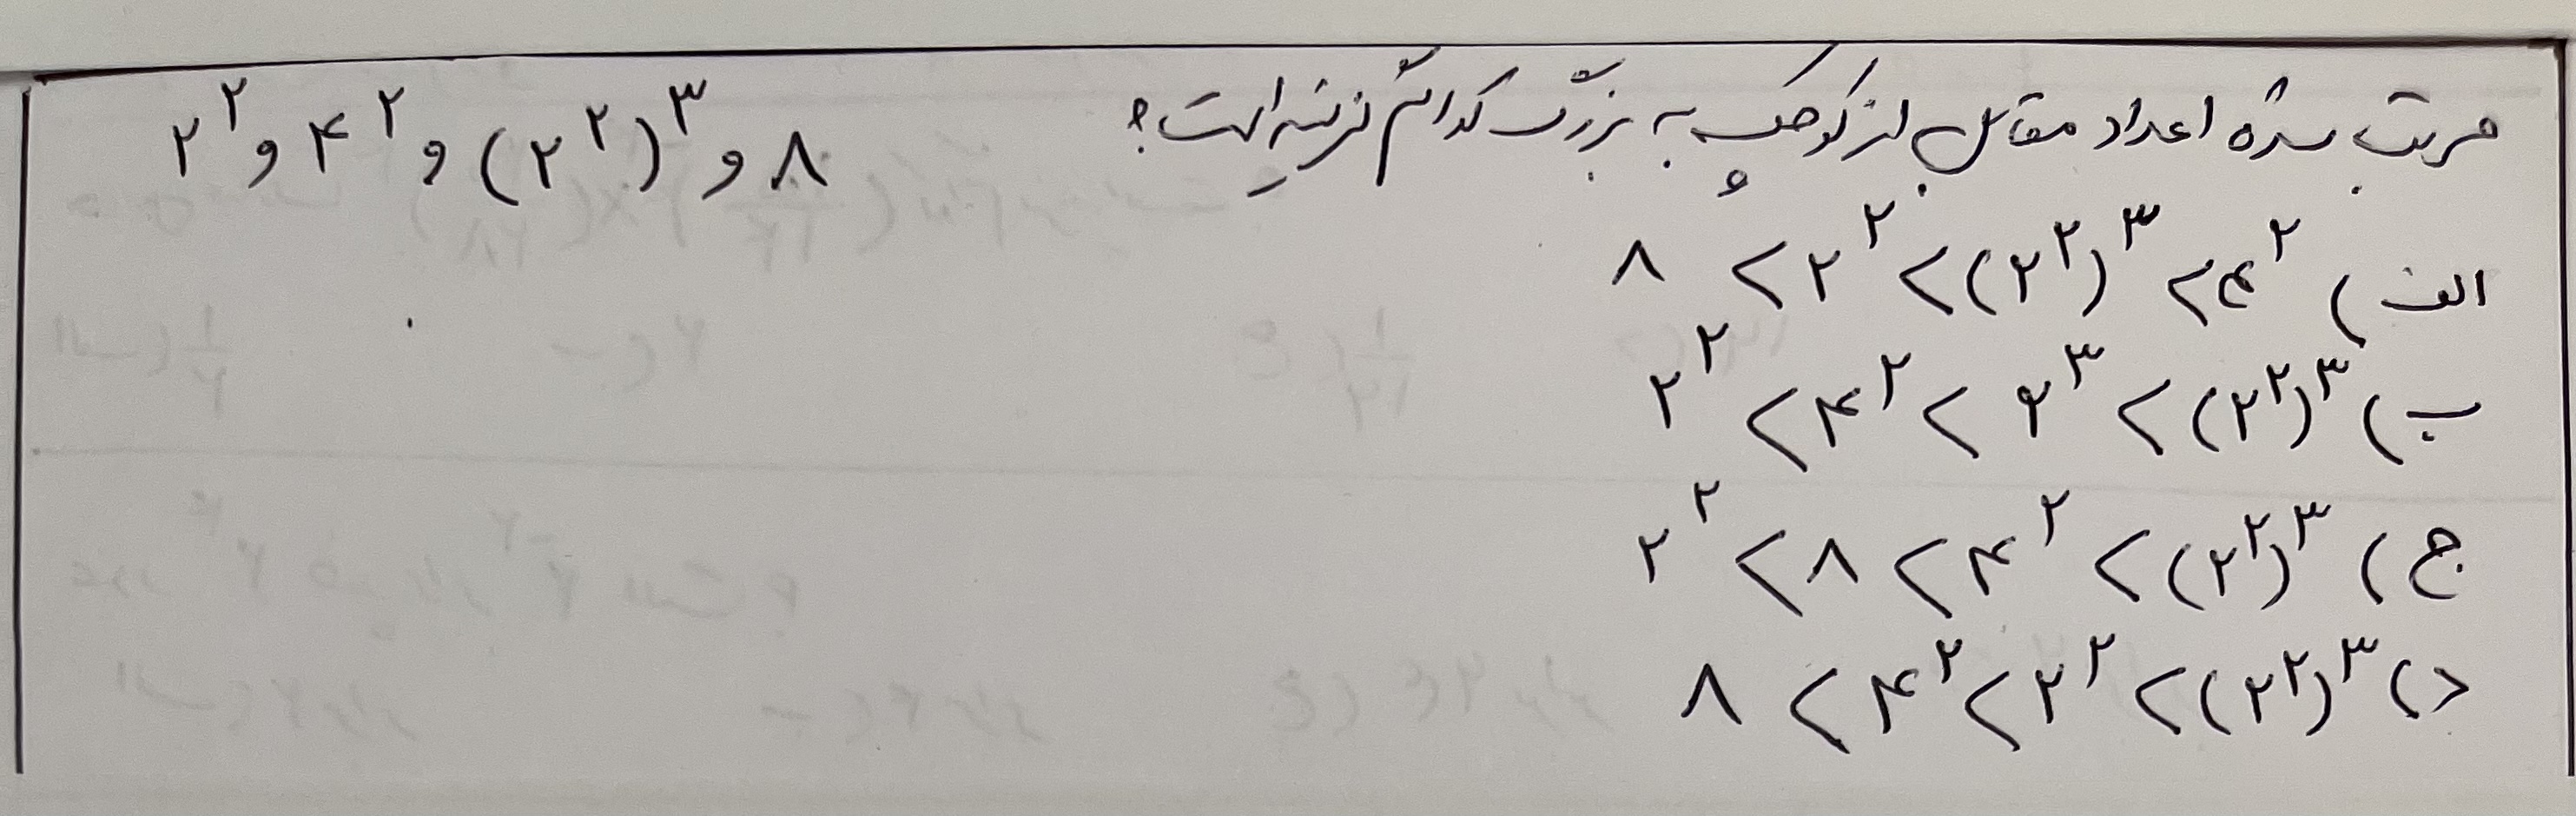 مرتب شده اعداد مقابل از کوچک به بزرگ کدام گزینه است؟ ۲^۲ و ۴^۲ و (۲^۲)^۳ و ۸
الف) ۸ < ۲^۲ < (۲^۲)^۳ < ۴^۲
ب) ۲^۲ < ۴^۲ < ۲^۳ < (۲^۲)^۳
ج) ۲^۲ < ۸ < ۴^۲ < (۲^۲)^۳
د) ۸ < ۴^۲ < ۲^۲ < (۲^۲)^۳